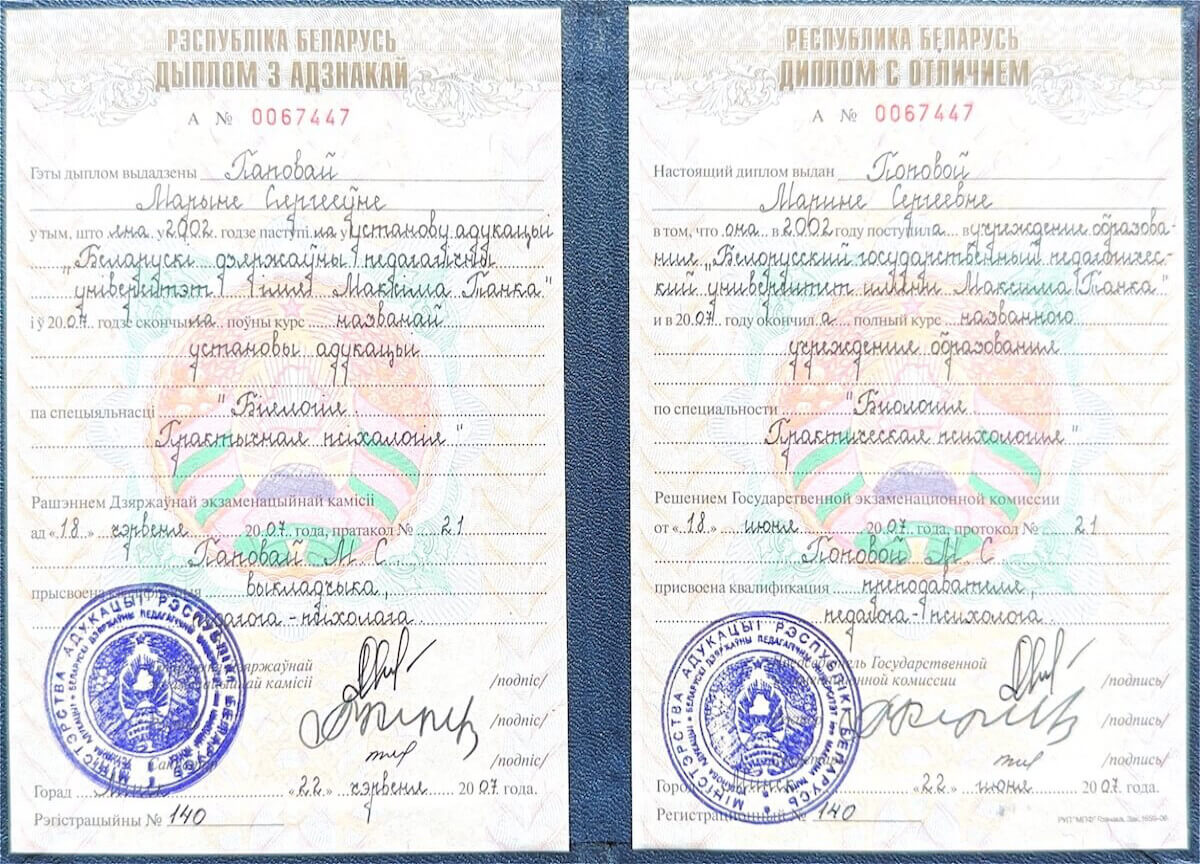 РЭСПУБЛІКА БЕЛАРУСЬ
ДЫПЛОМ З АДЗНАКАЙ
А № 0067447
Гэты дыплом выдадзены Паповай
Марыне Сергееўне
у тым, што яна у 2002 годзе паступіла у установу адукацыі
"Беларускі дзяржаўны педагагічны
універсітэт імя Максіма Танка"
і ў 2007 годзе скончыла поўны курс названай
установы адукацыі
па спецыяльнасці "Біялогія.
Практычная псіхалогія"
Рашэннем Дзяржаўнай экзаменацыйнай камісіі
ад «18» чэрвеня 2007 года, пратакол № 21
Паповай М. С
прысвоена кваліфікацыя выкладчыка,
педагога-псіхолага
Дзяржаўнай
камісіі /подпіс/
/подпіс/
/подпіс/
Горад Мінск «22» чэрвеня 2007 года.
Рэгістрацыйны № 140
МІНІСТЭРСТВА АДУКАЦЫІ РЭСПУБЛІКІ БЕЛАРУСЬ
РЕСПУБЛИКА БЕЛАРУСЬ
ДИПЛОМ С ОТЛИЧИЕМ
А № 0067447
Настоящий диплом выдан Поповой
Марине Сергеевне
в том, что она в 2002 году поступила в учреждение образова-
ния "Белорусский государственный педагогичес-
кий университет имени Максима Танка"
и в 2007 году окончила полный курс названного
учреждения образования
по специальности "Биология.
Практическая психология"
Решением Государственной экзаменационной комиссии
от «18» июня 2007 года, протокол № 21
Поповой М. С
присвоена квалификация преподавателя,
педагога-психолога
Председатель Государственной
комиссии /подпись/
/подпись/
/подпись/
Город Минск «22» июня 2007 года.
Регистрационный № 140
МІНІСТЭРСТВА АДУКАЦЫІ РЭСПУБЛІКІ БЕЛАРУСЬ